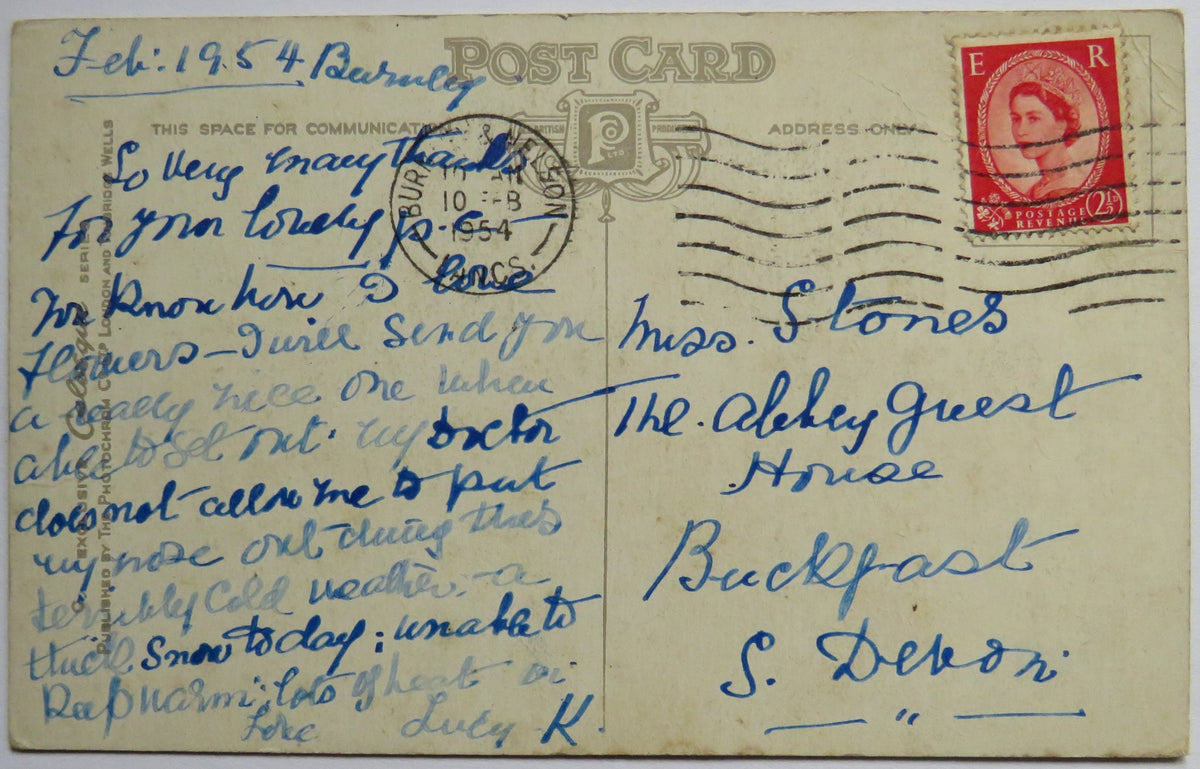 Feb: 1954 Burnley.
POST CARD
THIS SPACE FOR COMMUNICATION
ADDRESS ONLY
BRITISH PRODUC
P
LTD
BURN & NELSON
10
1954
LANCS.
E R
POSTAGE
REVENUE
2½D
So very many thanks
for your lovely p.c—
You know how I love
flowers — I will send you
a really nice one when
able to get out. My Doctor
does not allow me to put
my nose out during this
terribly cold weather. — a
thick snow to day; unable to
keep warm; lots of heat
Love Lucy K.
Miss. Stones
The. Abbey Guest
House
Buckfast
S. Devon.
— " —
EXCLUSIVE SERIES
PUBLISHED BY THE PHOTOCHROM CO. LTD LONDON AND TUNBRIDGE WELLS